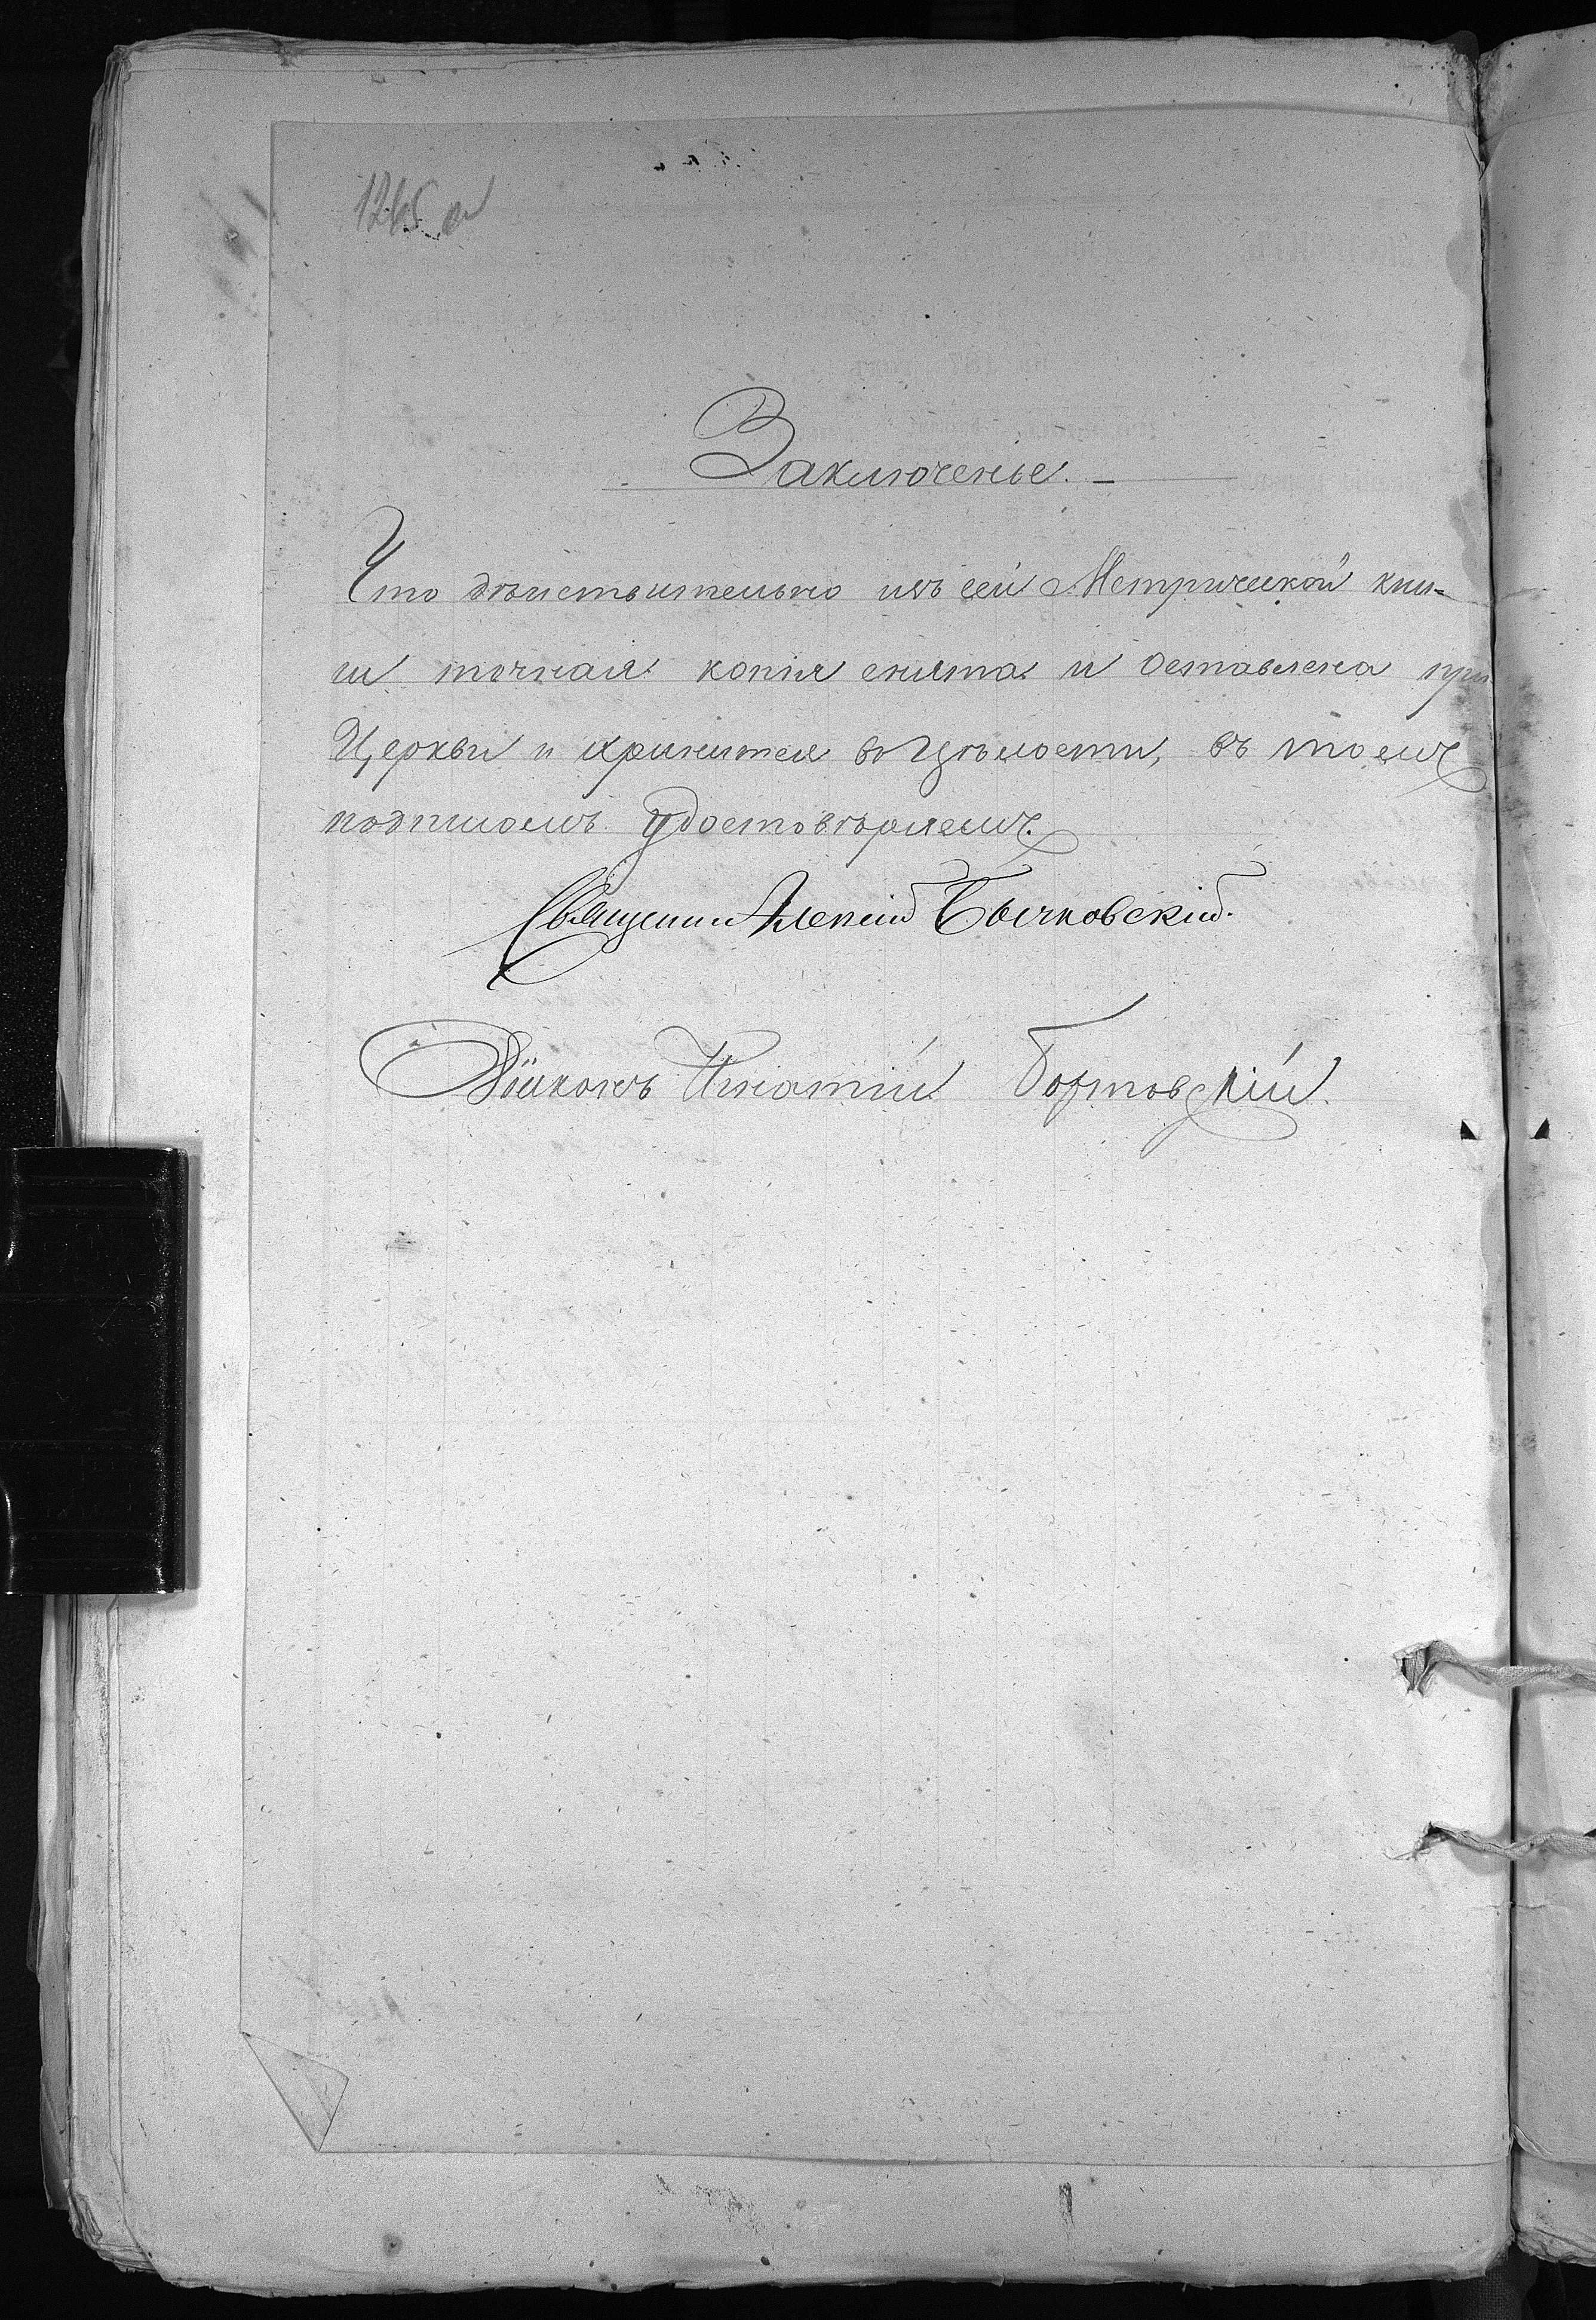 1245 об
Заключенье.
Что дѣйствительно изъ сей Метрической кни-
ги точная копія снята и оставлена при
Церкви и хранится въ цѣлости, въ томъ
подписомъ удостовѣряемъ.
Священник Алексій Бычковскій.
Діаконъ Игнатій Бортовскій.